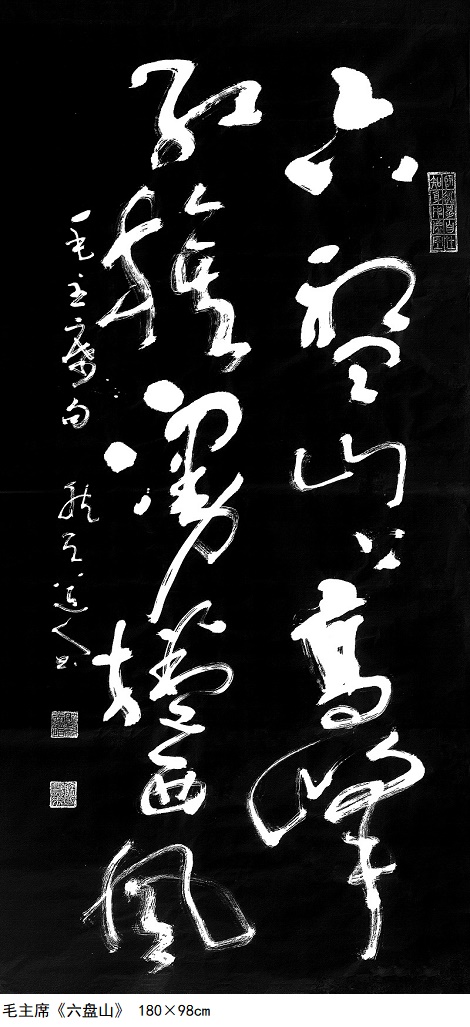 六盘山上高峰
红旗漫卷西风
毛主席句
毛主席《六盘山》 180×98cm